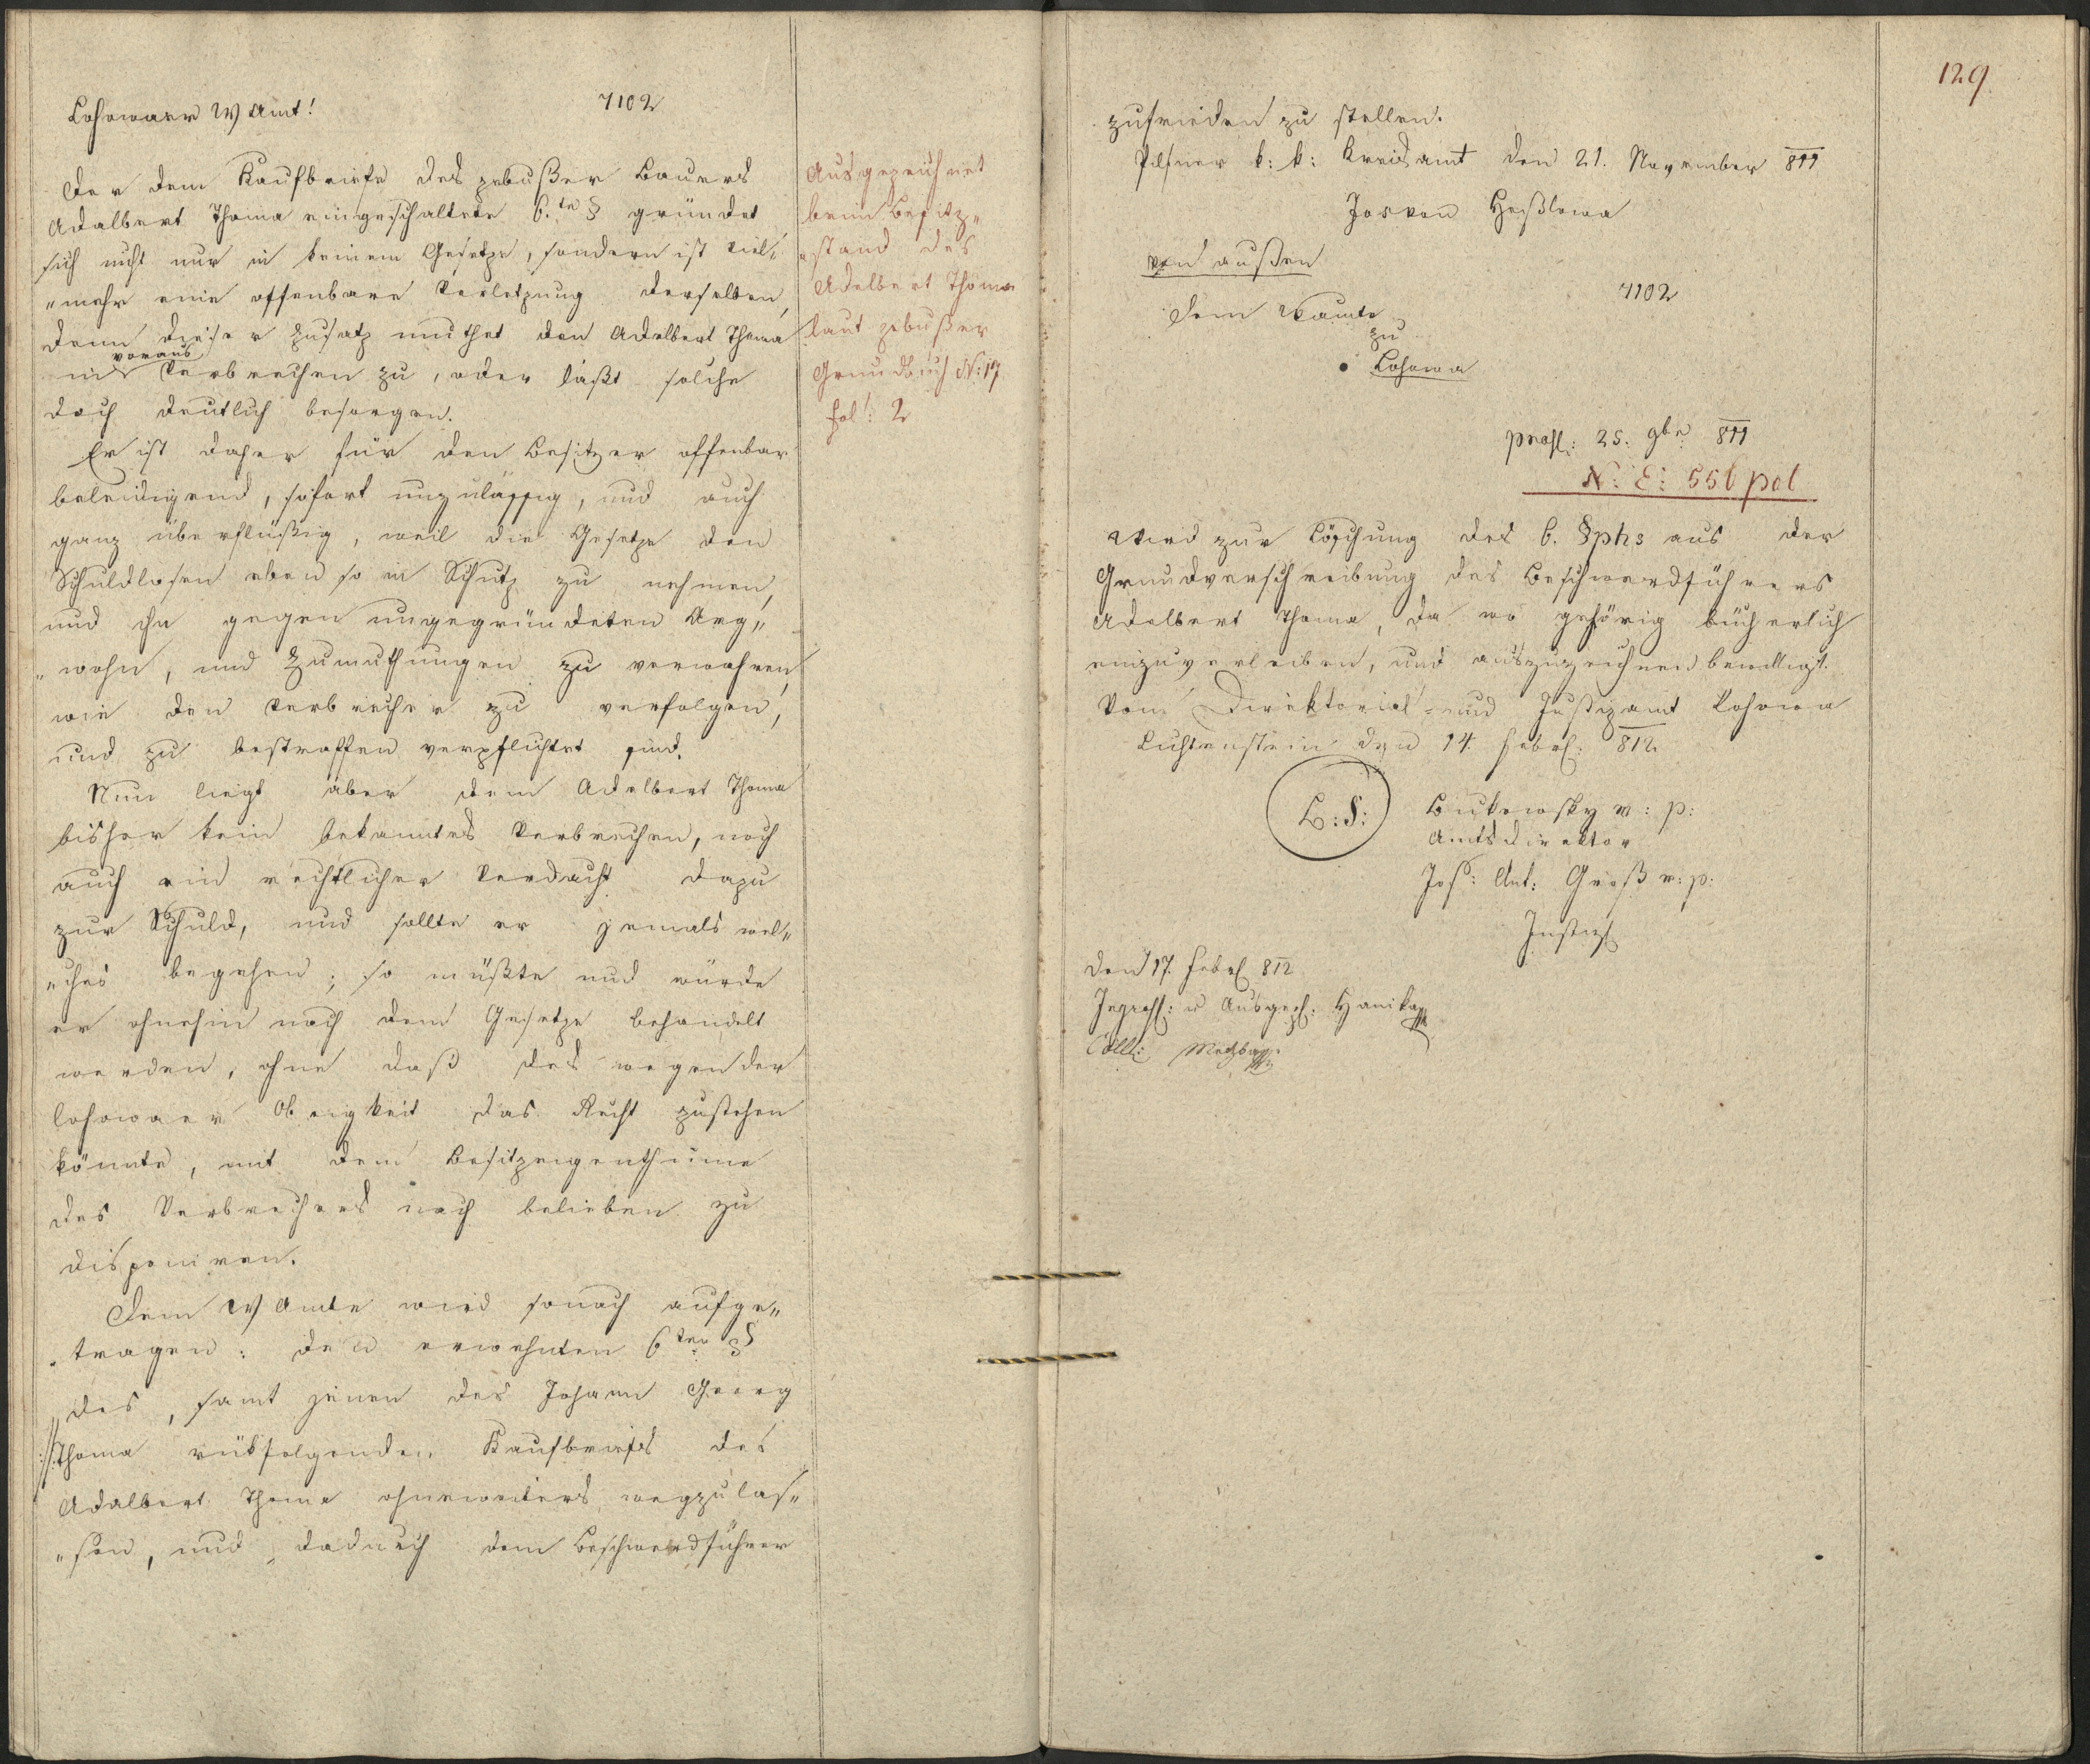 Lohowaer W Amt!
7102
Der dem Kaufbriefe des zebußer Bauers
Adalbert Thoma eingeschaltete 6.te § gründet
sich nicht nur in keinem Gesetze, sondern ist viel„
„mehr eine offenbare Verletzung derselben,
denn dieser Zusatz muthet den Adalbert Thoma
voraus
ein Verbrechen zu, oder läßt solche
doch deutlich besorgen.
Er ist daher für den Besitzer offenbar
beleidigend, sofort unzulässig, und auch
ganz überflüßig, weil die Gesetze den
Schuldlosen eben so in Schutz zu nehmen,
und ihn gegen ungegründeten Arg„
„wohn, und Zumuthungen zu verwahren,
wie den Verbrecher zu verfolgen,
und zu bestraffen verpflichtet sind.
Nun liegt aber dem Adalbert Thoma
bisher kein bekanntes Verbrechen, noch
auch ein rechtlicher Verdacht dazu
zur Schuld, und sollte er jemals wel„
„ches begehen; so müßte und würde
er ohnehin nach dem Gesetze behandelt
werden, ohne daß des wegen der
lohowaer Obrigkeit das Recht zustehen
könnte, mit dem Besitzeigenthume
des Verbrechers nach belieben zu
disponiren.
Dem W Amte wird sonach aufge„
„tragen: den erwehnten 6ten §
des, samt jenen des Johann Georg
Thoma rükfolgenden Kaufbriefs des
Adalbert Thoma ohneweiters wegzulas„
„sen, und dadurch dem Beschwerdführer
Ausgezeichnet
beim Besitz„
„stand des
Adelbert Thoma
laut zebußer
Grundbuch N: 17
fol: 2
129.
zufrieden zu stellen.
Pilsner k: k: Kreisamt den 21. November 811
Jos von
von außen
7102
Dem WAmte
zu
Lohowa
praes: 25. 9ber 811
N: E: 556 pol
Wird zur Löschung des 6. §phs aus der
Grundverschreibung des Beschwerdführers
Adelbert Thoma, da wo gehörig bücherlich
einzuverleiben, und auszuzeichnen bewilligt.
Vom Direktorial- und Justizamt Lohowa
Lichtenstein den 14. Febr: 812
L: S:
Bukowsky m: p:
Amtsdirektor
Jos: Ant: Groß m: p:
Justiz
den 17. Febr 812
Ingross: u Ausgez: Hanika
Coll: